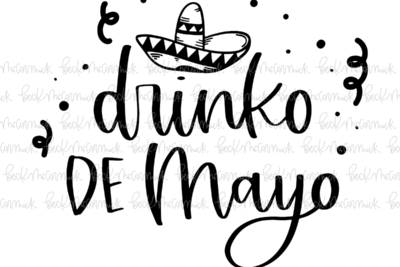 drinko
DE Mayo